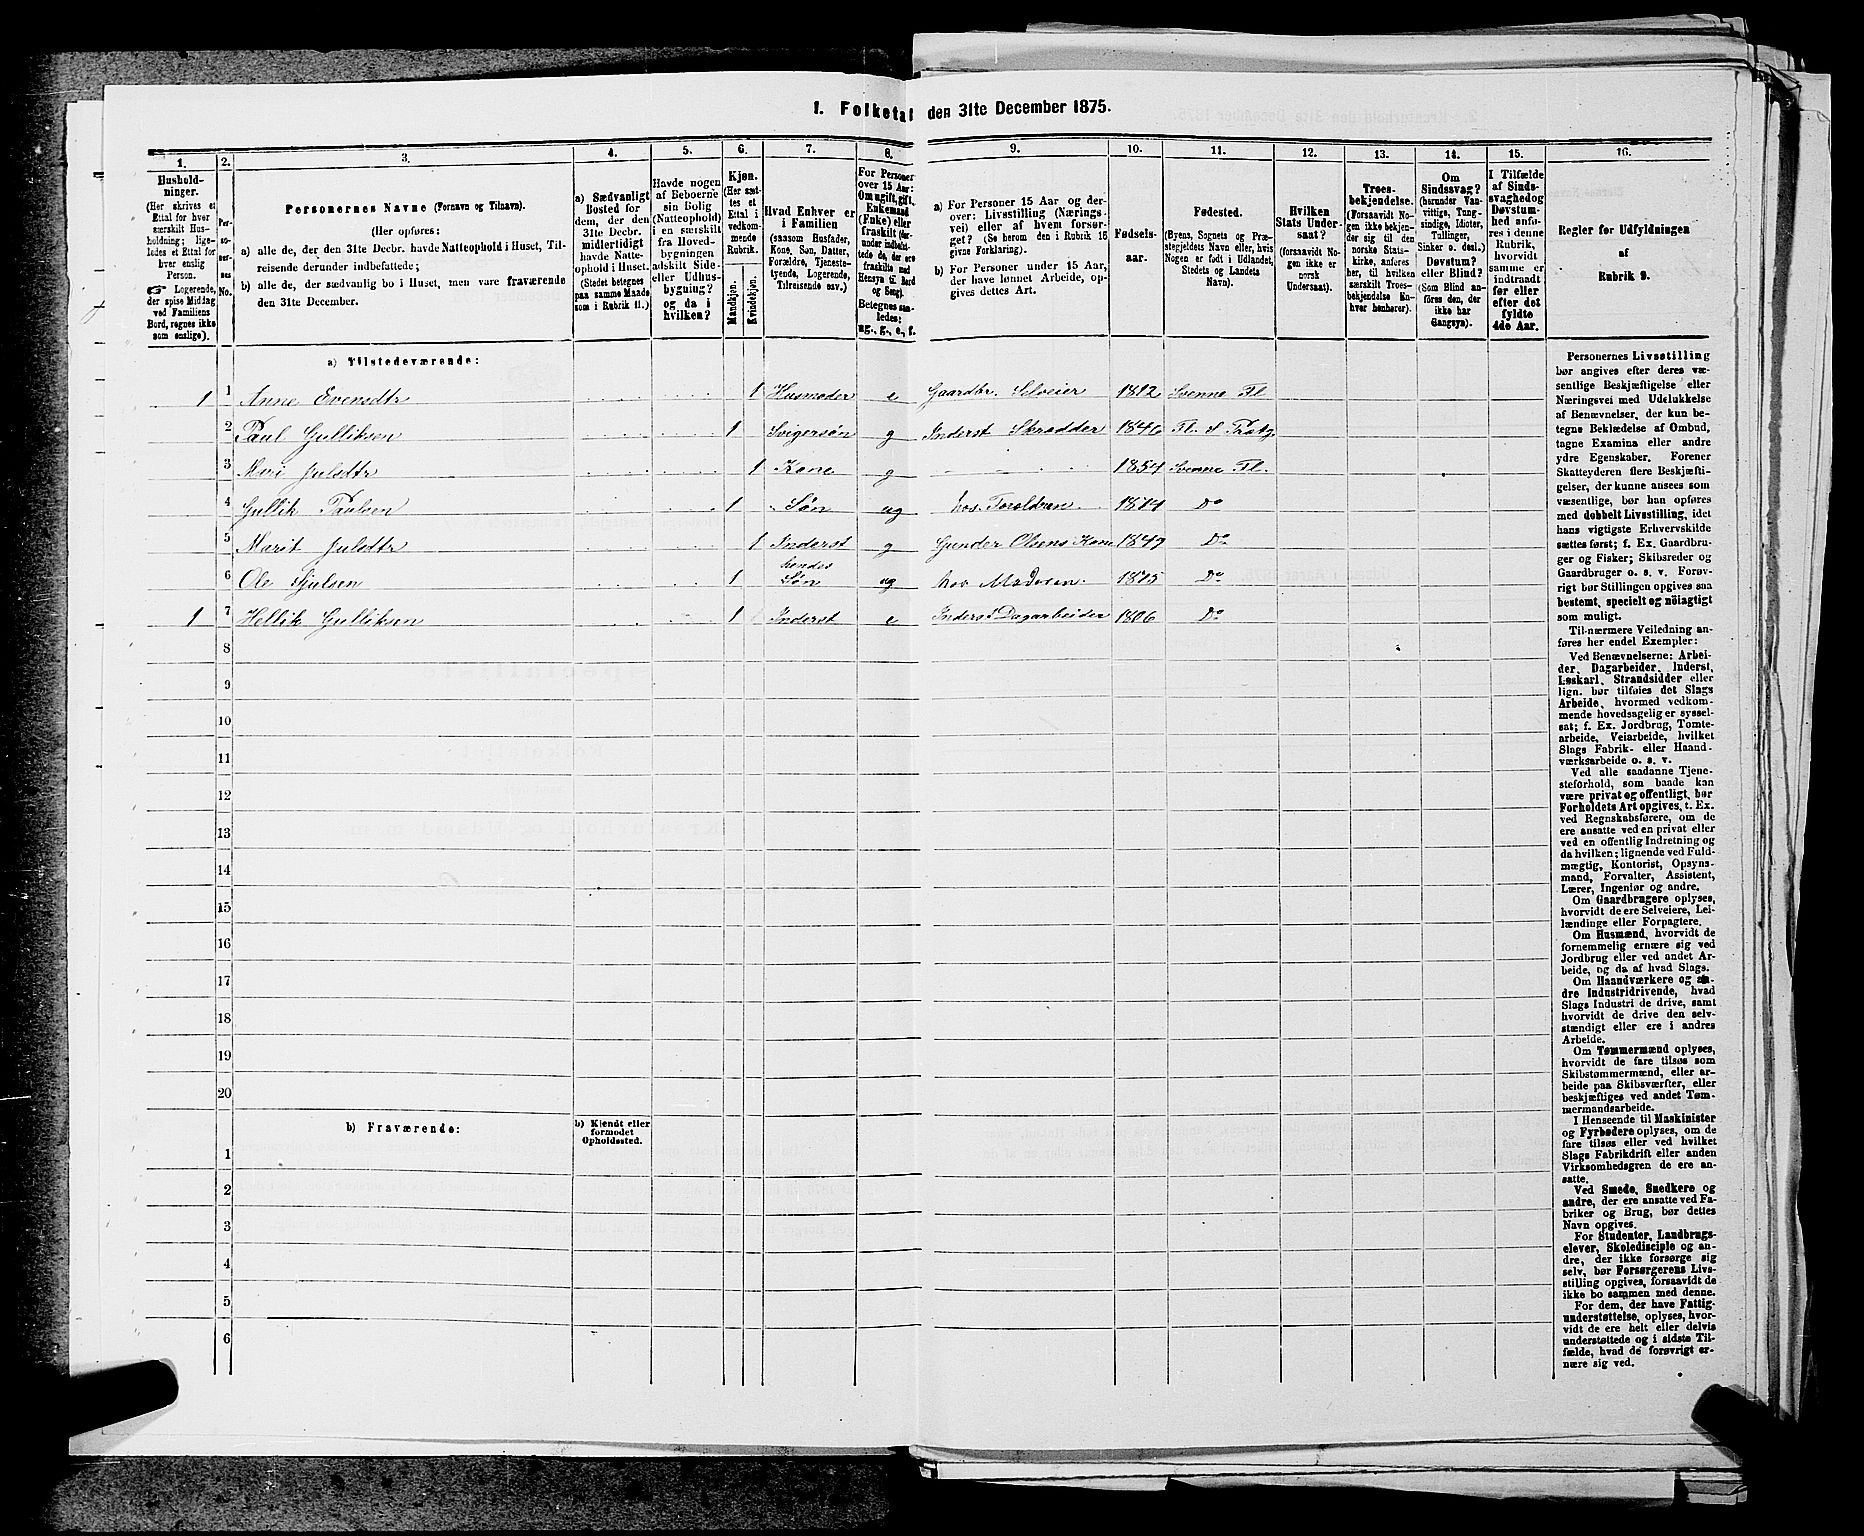 1. Folketal den 31te December 1875.
1.
2.
3.
4.
5.
6.
7.
8.
9.
10.
11.
12.
13.
14.
15.
16.
Hushold-
ninger.
(Her skrives et
Ettal for hver
særskilt Hus-
holdning; lige-
ledes et Ettal for
hver enslig
Person.
☞ Logerende,
der spise Middag
ved Familiens
Bord, regnes ikke
som enslige).
Per-
so-
ner-
nes
No.
Personernes Navne (Fornavn og Tilnavn).
(Her opføres:
a) alle de, der den 31te Decbr. havde Natteophold i Huset, Til-
reisende derunder indbefattede;
b) alle de, der sædvanlig bo i Huset, men vare fraværende
den 31te December.
a) Sædvanligt
Bosted for
dem, der den
31te Decbr.
midlertidigt
havde Natte-
ophold i Huset.
(Stedet betegnes
paa samme Maade
som i Rubrik 11.)
Havde nogen
af Beboerne
sin Bolig
(Natteophold)
i en særskilt
fra Hoved-
bygningen
adskilt Side-
eller Udhus-
bygning?
og da i
hvilken?
Kjøn.
(Her sæt-
tes et
Ettal i
vedkom-
mende
Rubrik.
Mandkjøn.
Kvindekjøn.
Hvad Enhver er
i Familien
(saasom Husfader,
Kone, Søn, Datter,
Forældre, Tjeneste-
tyende, Logerende,
Tilreisende osv.)
For Personer
over 15 Aar:
Om ugift, gift,
Enkemand
(Enke) eller
fraskilt (der-
under indbefat-
tede de, der ere
fraskilte med
Hensyn til Bord
og Seng).
Betegnes saa-
ledes:
ug., g., e., f.
a) For Personer 15 Aar og der-
over: Livsstilling (Nærings-
vei) eller af hvem forsør-
get? (Se herom den i Rubrik 16
givne Forklaring).
b) For Personer under 15 Aar,
der have lønnet Arbeide, op-
gives dettes Art.
Fødsels-
aar.
Fødested.
(Byens, Sognets og Præ-
stegjeldets Navn eller, hvis
Nogen er født i Udlandet,
Stedets og Landets
Navn).
Hvilken
Stats Under-
saat?
(forsaavidt No-
gen ikke er
norsk
Undersaat).
Troes-
bekjendelse.
(Forsaavidt No-
gen ikke bekjen-
der sig til den
norske Stats-
kirke, anføres
her, til hvilken
særskilt Troes-
bekjendelse En-
hver henhører).
Om
Sindssvag?
(herunder Van-
vittige, Tung-
sindige, Idioter,
Tullinger,
Sinker o. desl.)
Døvstum?
eller Blind?
(Som Blind an-
føres den, der
ikke har
Gangsyn).
I Tilfælde
af Sinds-
svaghed og
Døvstum-
hed anfø-
res i denne
Rubrik,
hvorvidt
samme er
indtraadt
før eller
efter det
fyldte
4de Aar.
Regler for Udfyldningen
af
Rubrik 9.
a) Tilstedeværende:
1 1 Anne Evensdtr 1 Husmoder e Gaardbr. Selveier 1812 Svenne Fl
2 Paul Gulliksen 1 Svigersøn g Inderst Skrædder 1846 Fl. S
3 Mari Julsdtr 1 Kone g 1854 Svenne Fl.
4 Gullik Paulsen 1 Søn ug hos Foreldren 1874 Do
5 Marit Julsdtr 1 Inderst g Gunder Olsens Kone 1849 Do
hendes
6 Ole 1 Søn ug hos Moderen 1875 Do
1 7 Hellik Gulliksen 1 Inderst e Inderst Dagarbeider 1806 Do
8
9
10
11
12
13
14
15
16
17
18
19
20
b) Fraværende:
b) Kjendt eller
formodet
Opholdssted.
1
2
3
4
5
6
Personernes Livsstilling
bør angives efter deres væ-
sentlige Beskjæftigelse eller
Næringsvei med Udelukkelse
af Benævnelser, der kun be-
tegne Beklædelse af Ombud,
tagne Examina eller andre
ydre Egenskaber. Forener
Skatteyderen flere Beskjæfti-
gelser, der kunne ansees som
væsentlige, bør han opføres
med dobbelt Livsstilling, idet
hans vigtigste Erhvervskilde
sættes først; f. Ex. Gaardbru-
ger og Fisker; Skibsreder og
Gaardbruger o. s. v. Forøv-
rigt bør Stillingen opgives saa
bestemt, specielt og nöiagtigt
som muligt.
Til nærmere Veiledning an-
føres her endel Exempler:
Ved Benævnelserne: Arbei-
der, Dagarbeider, Inderst,
Løskarl, Strandsidder eller
lign. bør tilføies det Slags
Arbeide, hvormed vedkom-
mende hovedsagelig er syssel-
sat; f. Ex. Jordbrug, Tomte-
arbeide, Veiarbeide, hvilket
Slags Fabrik- eller Haand-
værksarbeide o. s. v.
Ved alle saadanne Tjene-
steforhold, som baade kan
være privat og offentligt, bør
Forholdets Art opgives, t. Ex.
ved Regnskabsførere, om de
ere ansatte ved en privat eller
ved en offentlig Indretning og
da hvilken; lignende ved Fuld-
mægtig, Kontorist, Opsyns-
mand, Forvalter, Assistent,
Lærer, Ingeniør og andre.
Om Gaardbrugere oplyses,
hvorvidt de ere Selveiere, Lei-
lændinge eller Forpagtere.
Om Husmænd, hvorvidt de
fornemmelig ernære sig ved
Jordbrug eller ved andet Ar-
beide, og da af hvad Slags.
Om Haandværkere og an-
dre Industridrivende, hvad
Slags Industri de drive, samt
hvorvidt de drive den selv-
stændigt eller ere i andres
Arbeide.
Om Tømmermænd oplyses,
hvorvidt de fare tilsøs som
Skibstømmermænd, eller ar-
beide paa Skibsværfter, eller
beskjæftiges ved andet Tøm-
mermandsarbeide.
I Henseende til Maskinister
og Fyrbødere oplyses, om de
fare tilsøs eller ved hvilket
Slags Fabrikdrift eller anden
Virksomhedsgren de ere an-
satte.
Ved Smede, Snedkere og
andre, der ere ansatte ved Fa-
briker og Brug, bør dettes
Navn opgives.
For Studenter, Landbrugs-
elever, Skoledisciple og an-
dre, der ikke forsørge sig
selv, bør Forsørgerens Livs-
stilling opgives, forsaavidt de
ikke bo sammen med denne.
For dem, der have Fattig-
understøttelse, oplyses, hvor-
vidt de ere helt eller delvis
understøttede og i sidste Til-
fælde, hvad de forøvrigt er-
nære sig ved.